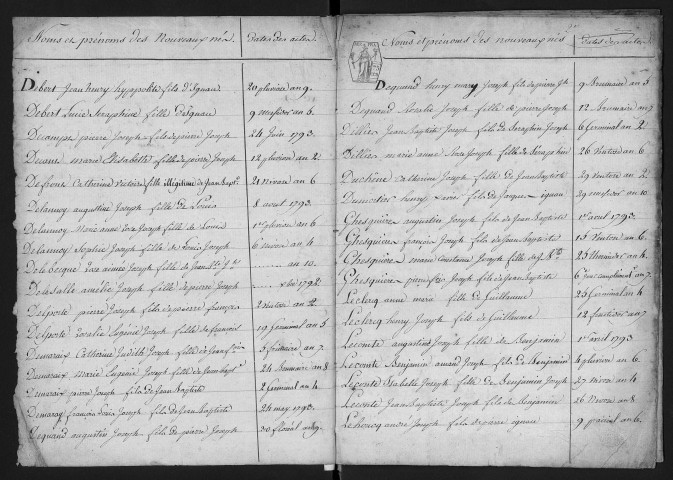 Noms et prénoms des Nouveaux nés. Dates des actes
Debert Jean henry hyppolite fils d'Ignace 20 pluviose an 9.
Debert Lucie Seraphine fille d'Ignace 9 messidor an 6.
Decamps pierre Joseph fils de pierre Joseph 24 Juin 1793.
marie Elisabette fille de pierre Joseph 12 pluviose an 2
Defrenne Catherine Victoire fille illégitime de Jean Bapt. 21 nivose an 6
Delannoy augustine Joseph fille de Louis 8 avril 1793.
Delannoy Marie anne Rose Joseph fille de Louis 1er pluviose an 6
Delannoy Sophie Joseph fille de Louis Joseph 6 nivose an 4
Delebecque Rose aimée Joseph fille de Jean Bte an 10.
Delesalle amélie Joseph fille de pierre Joseph 1792
Delporte pierre Joseph fils de pierre françois 2 ventose an 2
Delporte Rosalie Eugénie Joseph fille de françois 19 Germinal an 5
Demaraux Catherine Judith Joseph fille de Jean 5 frimaire an 7.
Demaraux Marie Eugénie Joseph fille de Jean Bapt. 24 Brumaire an 8
Demaraux pierre Joseph fils de Jean Baptiste 2 Germinal an 4
Demaraux françois Joseph fils de Jean Baptiste 24 may 1793.
Dequand augustin Joseph fils de pierre Joseph 30 floréal an 9.
Noms et prénoms des nouveaux nés Dates des actes
Dequand henry marie Joseph fils de pierre Jh 9 Brumaire an 5
Dequand Rosalie Joseph fille de pierre Joseph 12 Brumaire an 7
Dillies Jean Baptiste Joseph fils de Seraphin Joseph 6 Germinal an 2
Dillies marie anne Rose Joseph fille de Seraphin 26 Ventose an 6
Duchêne Catherine Joseph fille de Jean Baptiste 29 ventose an 2
Dumortier henry Xavier fils de Jacques ignace 29 messidor an 10.
Ghesquière augustin Joseph fils de Jean Baptiste 1er avril 1793.
Ghesquière françois Joseph fils de Jean Baptiste 15 Ventose an 6.
Ghesquière marie Constance Joseph fille de J. Bte 25 thermidor an 4
Ghesquière pierre Joseph fils de Jean Baptiste 6e jour complement. an 7.
Leclercq anne marie fille de Guillaume 25 Germinal an 4
Leclercq henry Joseph fils de Guillaume 12 fructidor an 7
Lecomte augustine Joseph fille de Benjamin 1er avril 1793
Lecomte Benjamin amand Joseph fils de Benjamin 4 pluviose an 6.
Lecomte Isabelle Joseph fille de Benjamin Joseph 27 nivose an 4
Lecomte Jean Baptiste Joseph fils de Benjamin 26 Nivose an 8
Lehoucq andré Joseph fils de pierre ignace 9 prairial an 6.